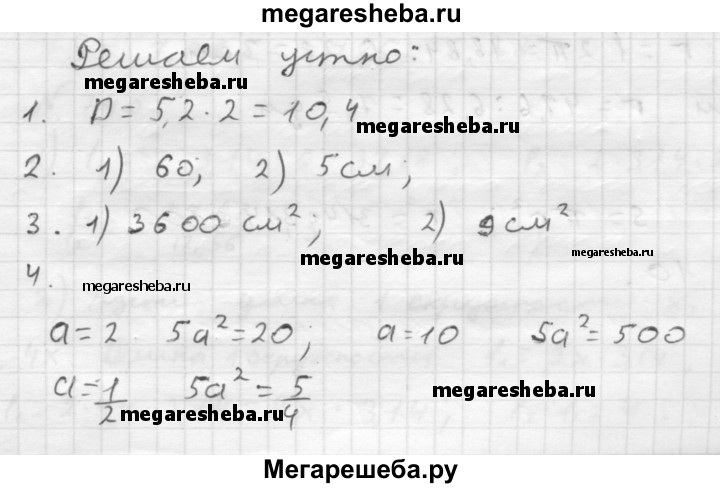 megaresheba.ru
Решаем устно:
megaresheba.ru megaresheba.ru
1. D = 5,2 · 2 = 10,4
megaresheba.ru megaresheba.ru
2. 1) 60; 2) 5 см;
3. 1) 3600 см²; 2) 9 см²
megaresheba.ru megaresheba.ru
4.
megaresheba.ru
a = 2 5a² = 20; a = 10 5a² = 500
a = 1/2 5a² = 5/4
megaresheba.ru megaresheba.ru
Мегарешеба.ру